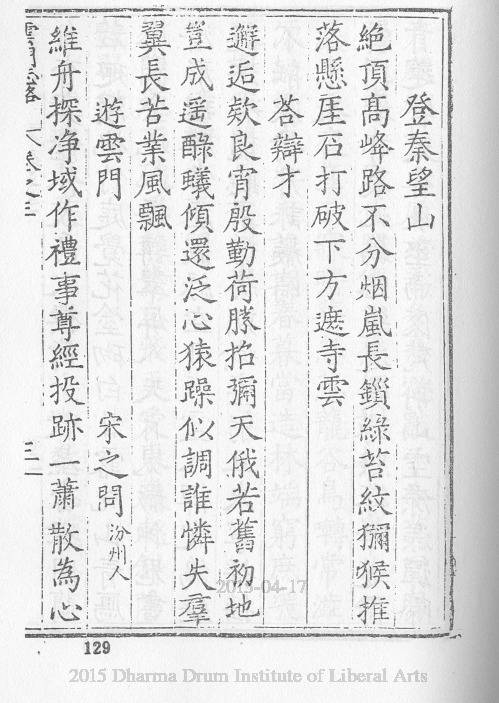 登秦望山
絶頂髙峰路不分烟嵐長鎖綠苔紋獼猴推
落懸厓石打破下方遮寺雲
荅辯才
邂逅欵良宵殷勤荷勝招彌天俄若舊初地
豈成遥醁蟻傾還泛心猿躁似調誰憐失羣
翼長苦業風飄
遊雲門 宋之問 汾州人
維舟探净域作禮事尊經投跡一蕭散為心
雲門志略 卷之三 三一
129
2013-04-17
2015 Dharma Drum Institute of Liberal Arts